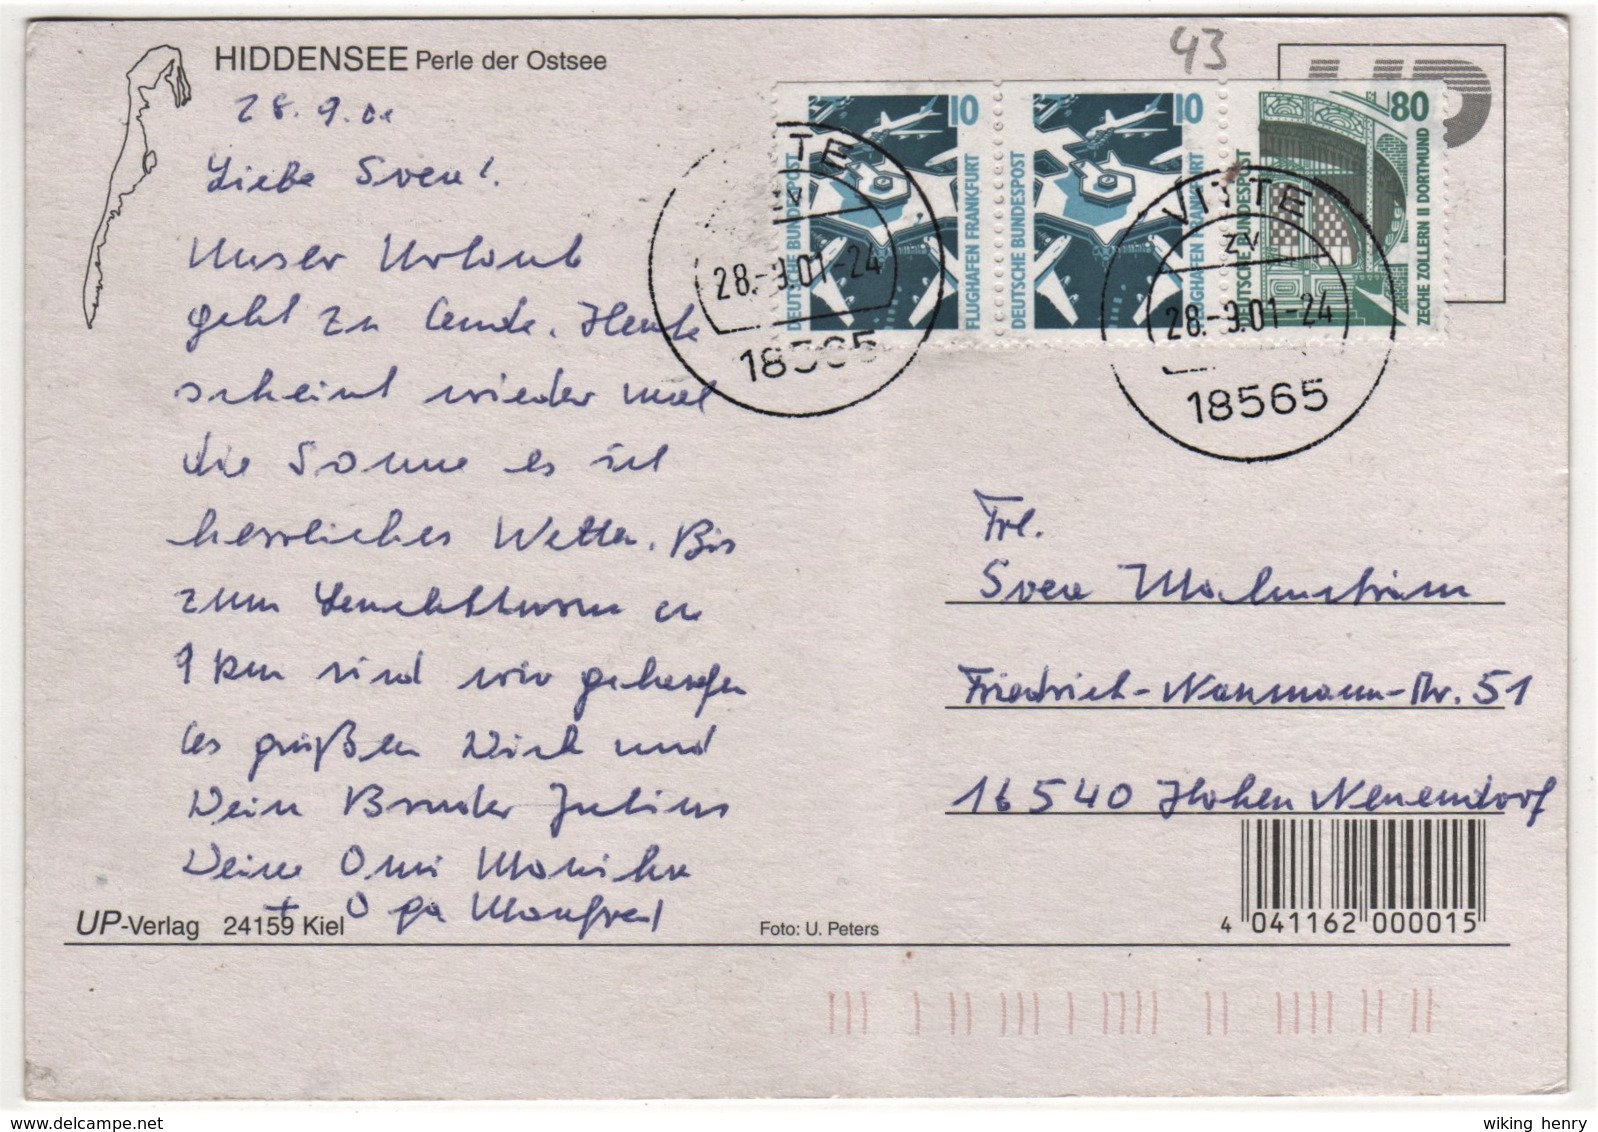 HIDDENSEE Perle der Ostsee
28.9.01
Liebe Svea!
Unser Urlaub
geht zu Ende. Heute
scheint wieder mal
die Sonne es ist
herrliches Wetter. Bis
zum Leuchtturm ca
9 km sind wir gelaufen
Es grüßen Dich und
Dein Bruder Julius
Deine Omi Monika
+ Opa Manfred
UP-Verlag 24159 Kiel
Foto: U. Peters
43
10
DEUTSCHE BUNDESPOST
FLUGHAFEN FRANKFURT
10
DEUTSCHE BUNDESPOST
FLUGHAFEN FRANKFURT
80
DEUTSCHE BUNDESPOST
ZECHE ZOLLERN II DORTMUND
28.-9.01-24
18565
VITTE
ZV
28.-9.01-24
18565
Frl.
Svea
Friedrich-Naumann-Str. 51
16540 Hohen Neuendorf
4 041162 000015
wiking henry